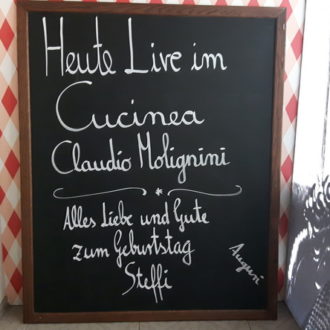 Heute Live im
Cucinea
Claudio Molignini
Alles Liebe und Gute
zum Geburtstag
Steffi
Auguri